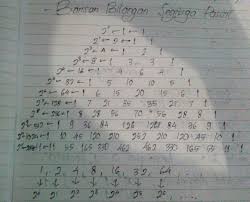 Barisan Bilangan Segitiga Pascal
2⁰ ← 1 ← 1
2¹ ← 2 ← 1 1
2² ← 4 ← 1 2 1
2³ ← 8 ← 1 3 3 1
2⁴ ← 16 ← 1 4 6 4 1
2⁵ ← 32 ← 1 5 10 10 5 1
2⁶ ← 64 ← 1 6 15 20 15 6 1
2⁷ ← 128 ← 1 7 21 35 35 21 7 1
2⁸ ← 256 ← 1 8 28 56 70 56 28 8 1
2⁹ ← 512 ← 1 9 36 84 126 126 84 36 9 1
2¹⁰ ← 1024 ← 1 10 45 120 210 252 210 120 45 10 1
1 11 55 165 330 462 462 330 165 55 11 1
1, 2, 4, 8, 16, 32, 64
↓ ↓ ↓ ↓ ↓ ↓ ↓
2⁰ 2¹ 2² 2³ 2⁴ 2⁵ 2⁶